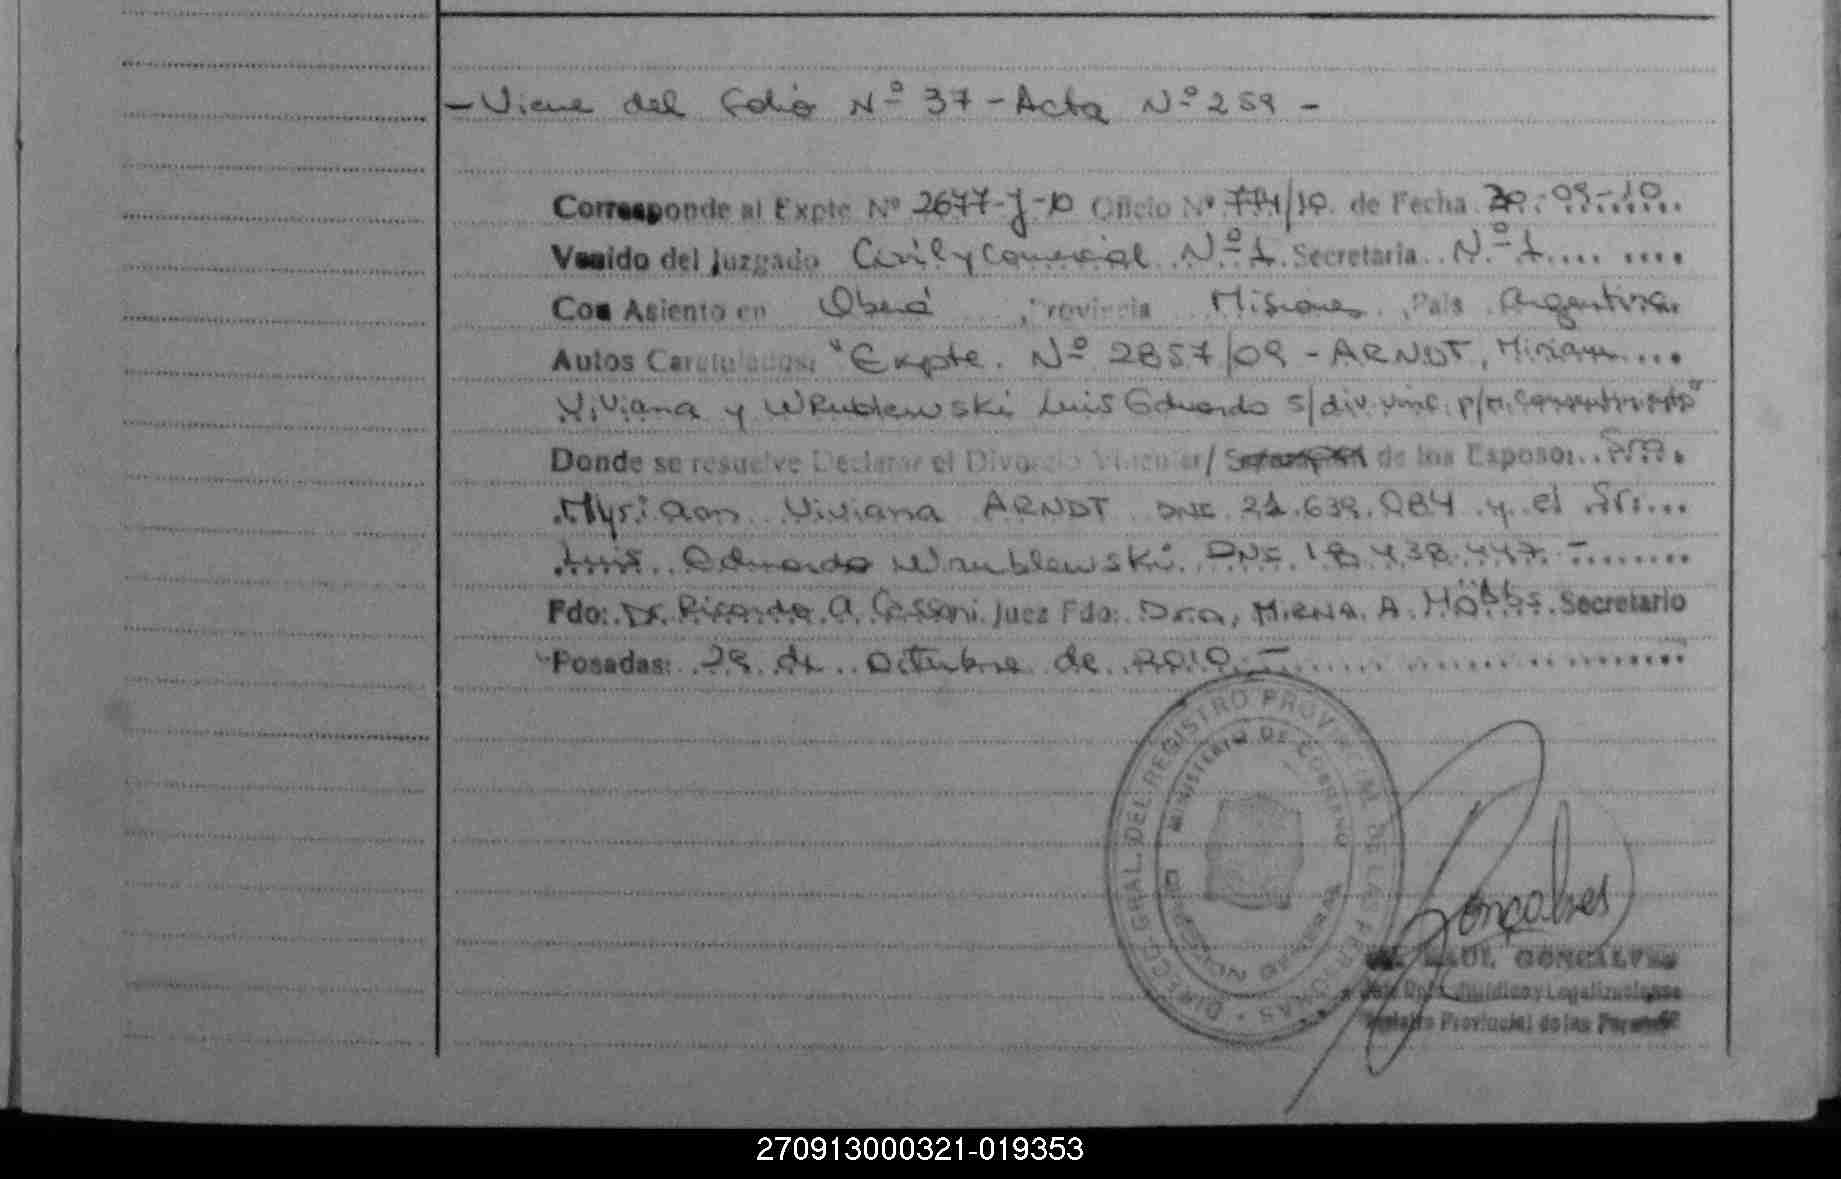 - Viene del Folio Nº 37 - Acta Nº 259 -
Corresponde al Expte Nº 2677-J-10 Oficio Nº 774/10 de Fecha 20-09-10
Venido del Juzgado Civil y Comercial Nº 1 Secretaria Nº 1
Con Asiento en Oberá Provincia Misiones País Argentina
Autos Caratulados: "Expte. Nº 2857/09 - ARNDT, Miriam
Viviana y WRublewski Luis Eduardo s/div. vinc. p/m. consentimiento"
Donde se resuelve Declarar el Divorcio Vincular/ de los Esposos Sra.
Myriam Viviana ARNDT DNI 21.639.084 y el Sr.
Luis Eduardo Wrublewski DNI 18.438.447 -
Fdo: Dr. Ricardo A. Cassoni Juez Fdo: Dra, MIRNA A. Secretario
Posadas: 29 de Octubre de 2010 -
DIRECC. GRAL. DEL REGISTRO PROVINCIAL DE LAS PERSONAS
MINISTERIO DE GOBIERNO
Gonçalves
RAUL GONCALVES
Jefe Dpto. Jurídico y Legalizaciones
Registro Provincial de las Personas
270913000321-019353